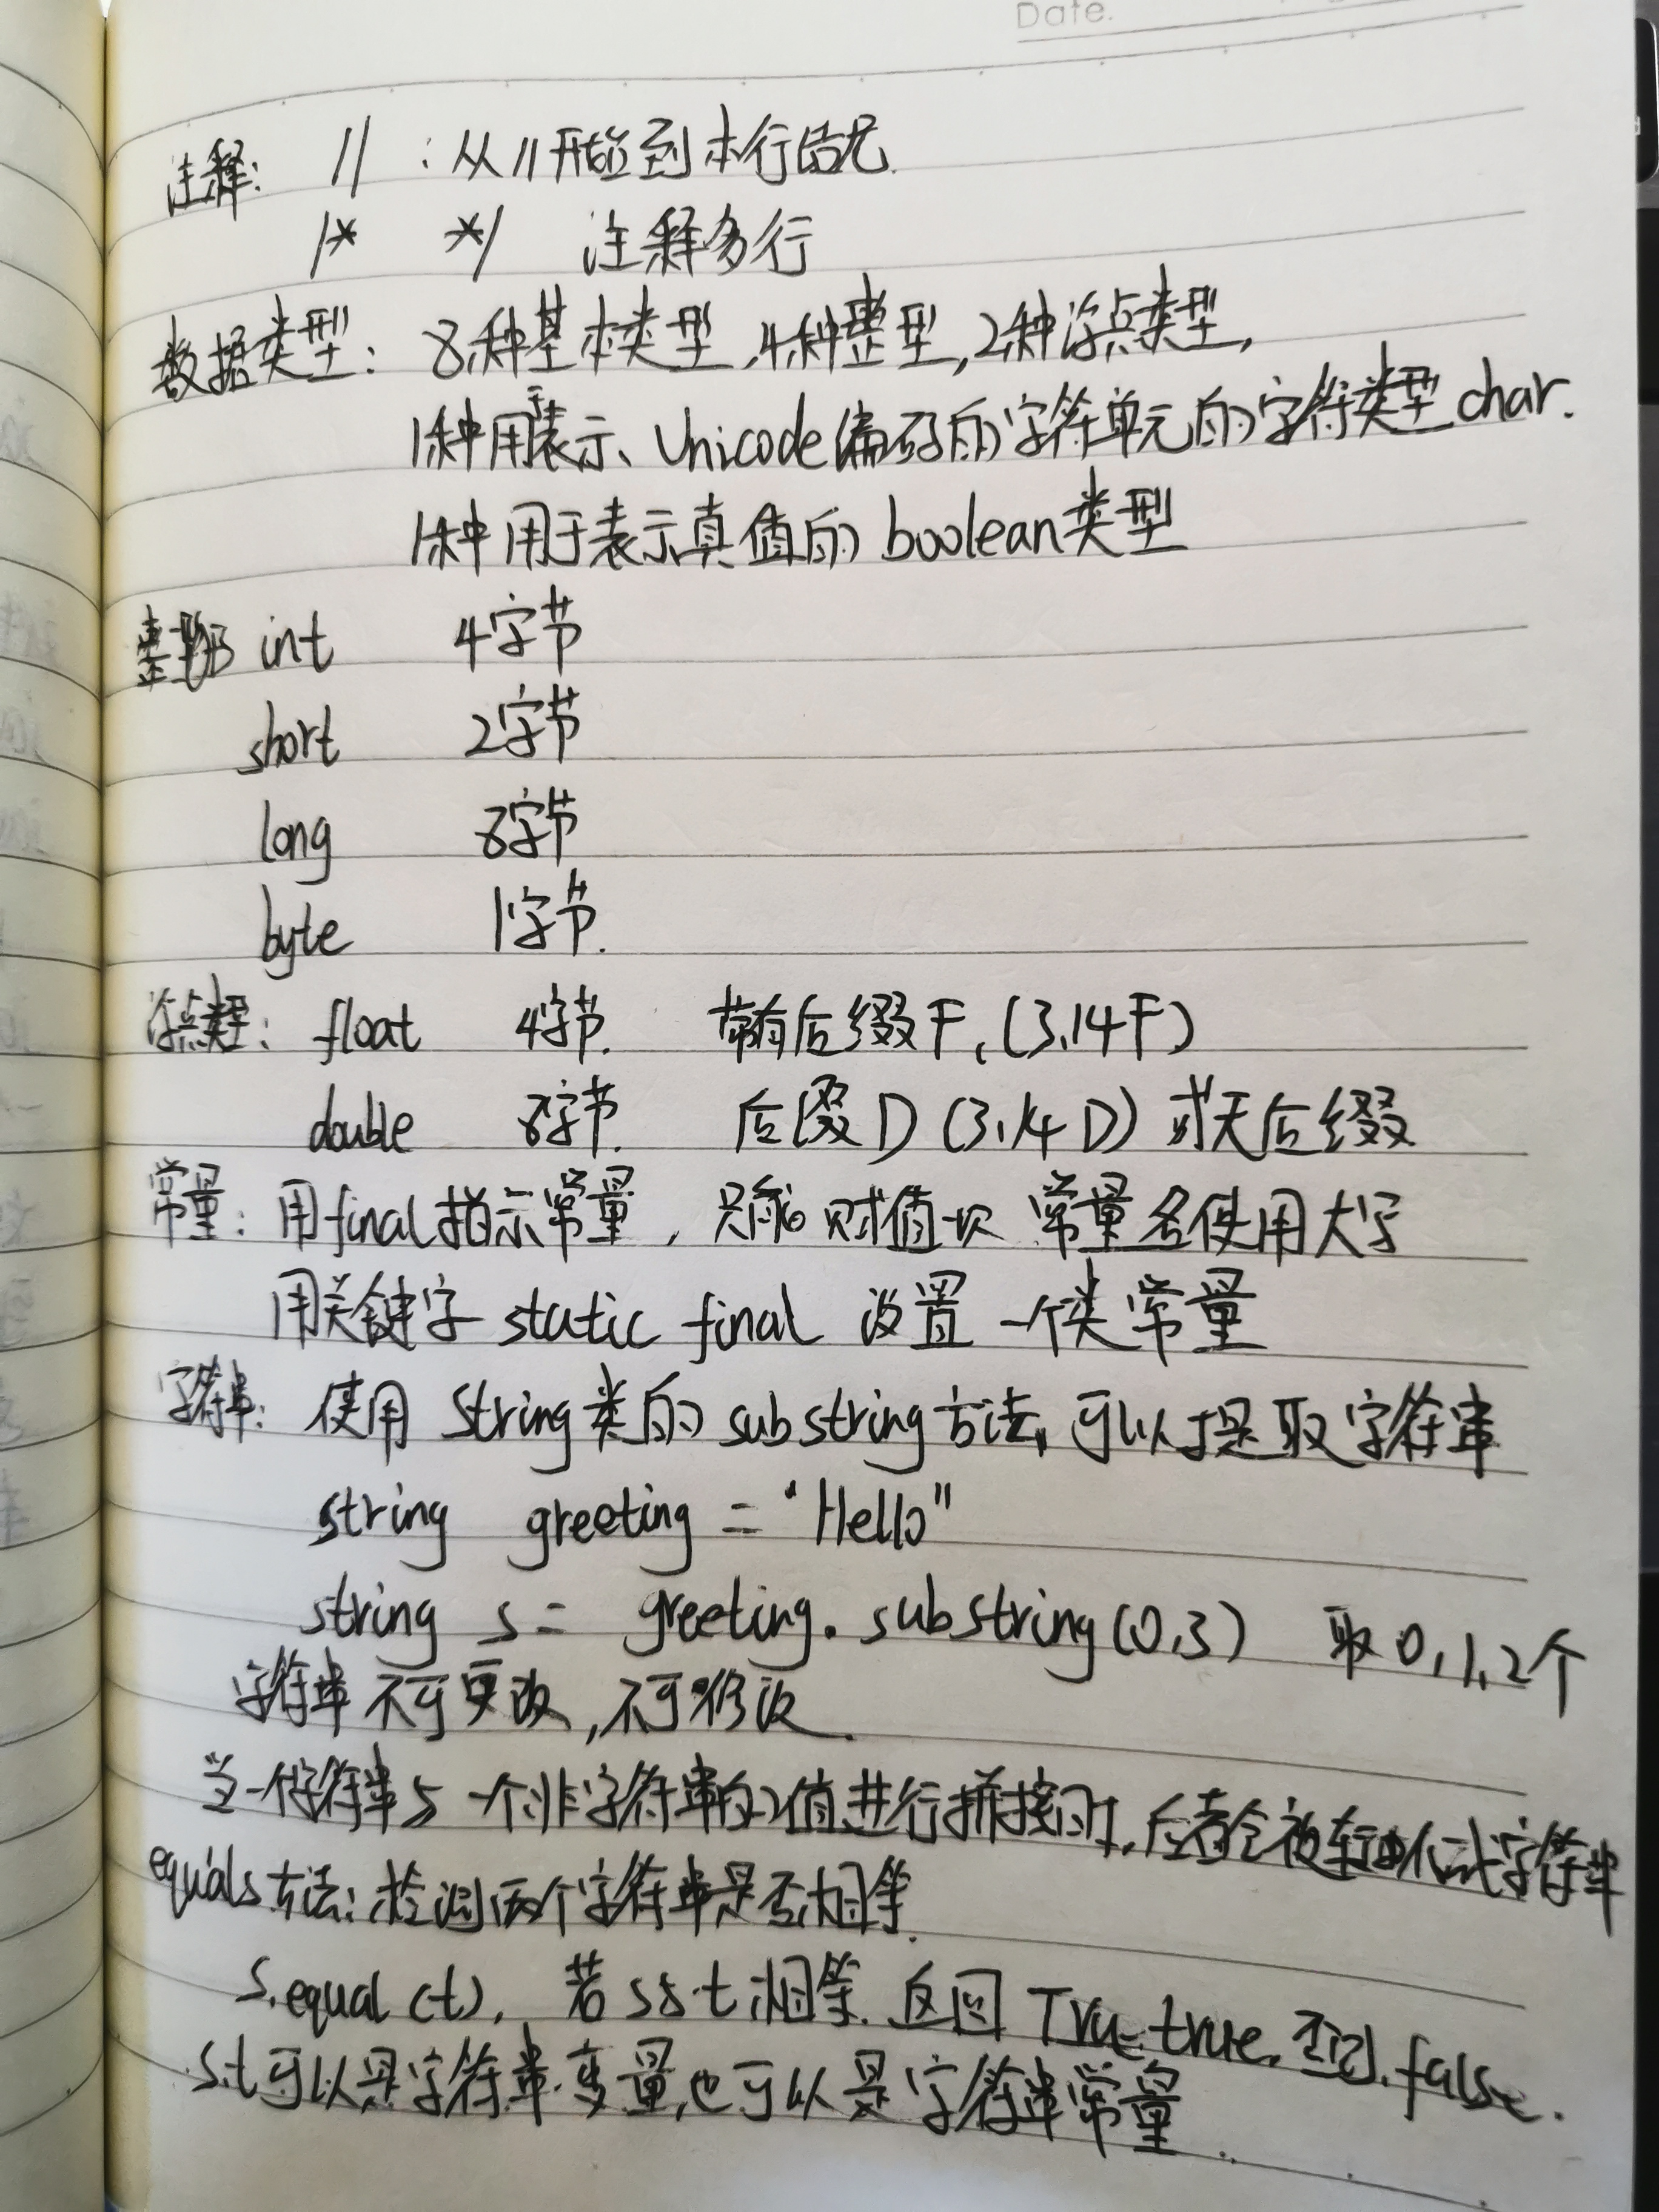 Date.
注释: // : 从//开始到本行结尾.
/* */ 注释多行
数据类型: 8种基本类型,4种整型,2种浮点类型,
1种用于表示、Unicode编码的字符单元的字符类型char.
1种用于表示真值的boolean类型
整形 int 4字节
short 2字节
long 8字节
byte 1字节.
浮点类型: float 4字节. 带有后缀F,(3.14F)
double 8字节. 后缀D(3.14D)或无后缀
常量: 用final指示常量,只能赋值一次 常量名使用大写
用关键字 static final 设置一个类常量
字符串: 使用String类的substring方法,可以提取字符串
string greeting = "Hello"
string s = greeting.substring(0,3) 取0,1,2个
字符串不可更改,不可修改.
当一个字符串与一个非字符串的值进行拼接时,后者会被转换成字符串
equals方法:检测两个字符串是否相等.
s.equal(t), 若s与t相等.返回True true.否则.false.
s.t可以是字符串变量,也可以是字符串常量.